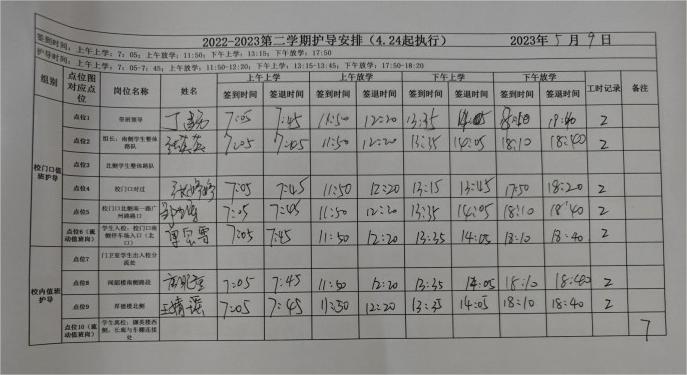 2022-2023第二学期护导安排（4.24起执行） 2023年5月9日
签到时间：上午上学：7：05；上午放学：11:50；下午上学：13:15；下午放学：17:50
护导时间：上午上学：7:05-7：45；上午放学：11:50-12:20；下午上学：13:15-13:45；下午放学：17:50-18:20
组别 点位图对应点位 岗位名称 姓名 上午上学 上午放学 下午上学 下午放学 工时记录 备注
签到时间 签退时间 签到时间 签退时间 签到时间 签退时间 签到时间 签退时间
校门口值班护导
点位1 带班领导 7:05 7:45 11:50 12:20 13:35 14:05 18:40 2
点位2 组长：南侧学生整体路队 7:05 7:05 11:50 12:20 13:35 14:05 18:10 18:40 2
点位3 北侧学生整体路队
点位4 校门口对过 7:05 7:45 11:50 12:20 13:15 13:45 17:50 18:20 2
点位5 校门口北侧南一路广州路路口 7:05 7:45 11:50 12:20 13:35 14:05 18:10 18:40 2
点位6（流动值班岗） 学生入校：校门口南侧停车场入口（北口） 7:05 7:45 11:50 12:20 13:35 14:05 18:10 18:40 2
校内值班护导
点位7 门卫室学生出入校分流处
点位8 南侧路段 7:05 7:45 11:50 12:20 13:35 14:05 18:10 18:40 2
点位9 楼北侧 王婧瑶 7:05 7:45 11:50 12:20 13:35 14:05 18:10 18:40 2
点位10（流动值班岗） 学生离校：楼西侧，长廊与车棚连接处 7